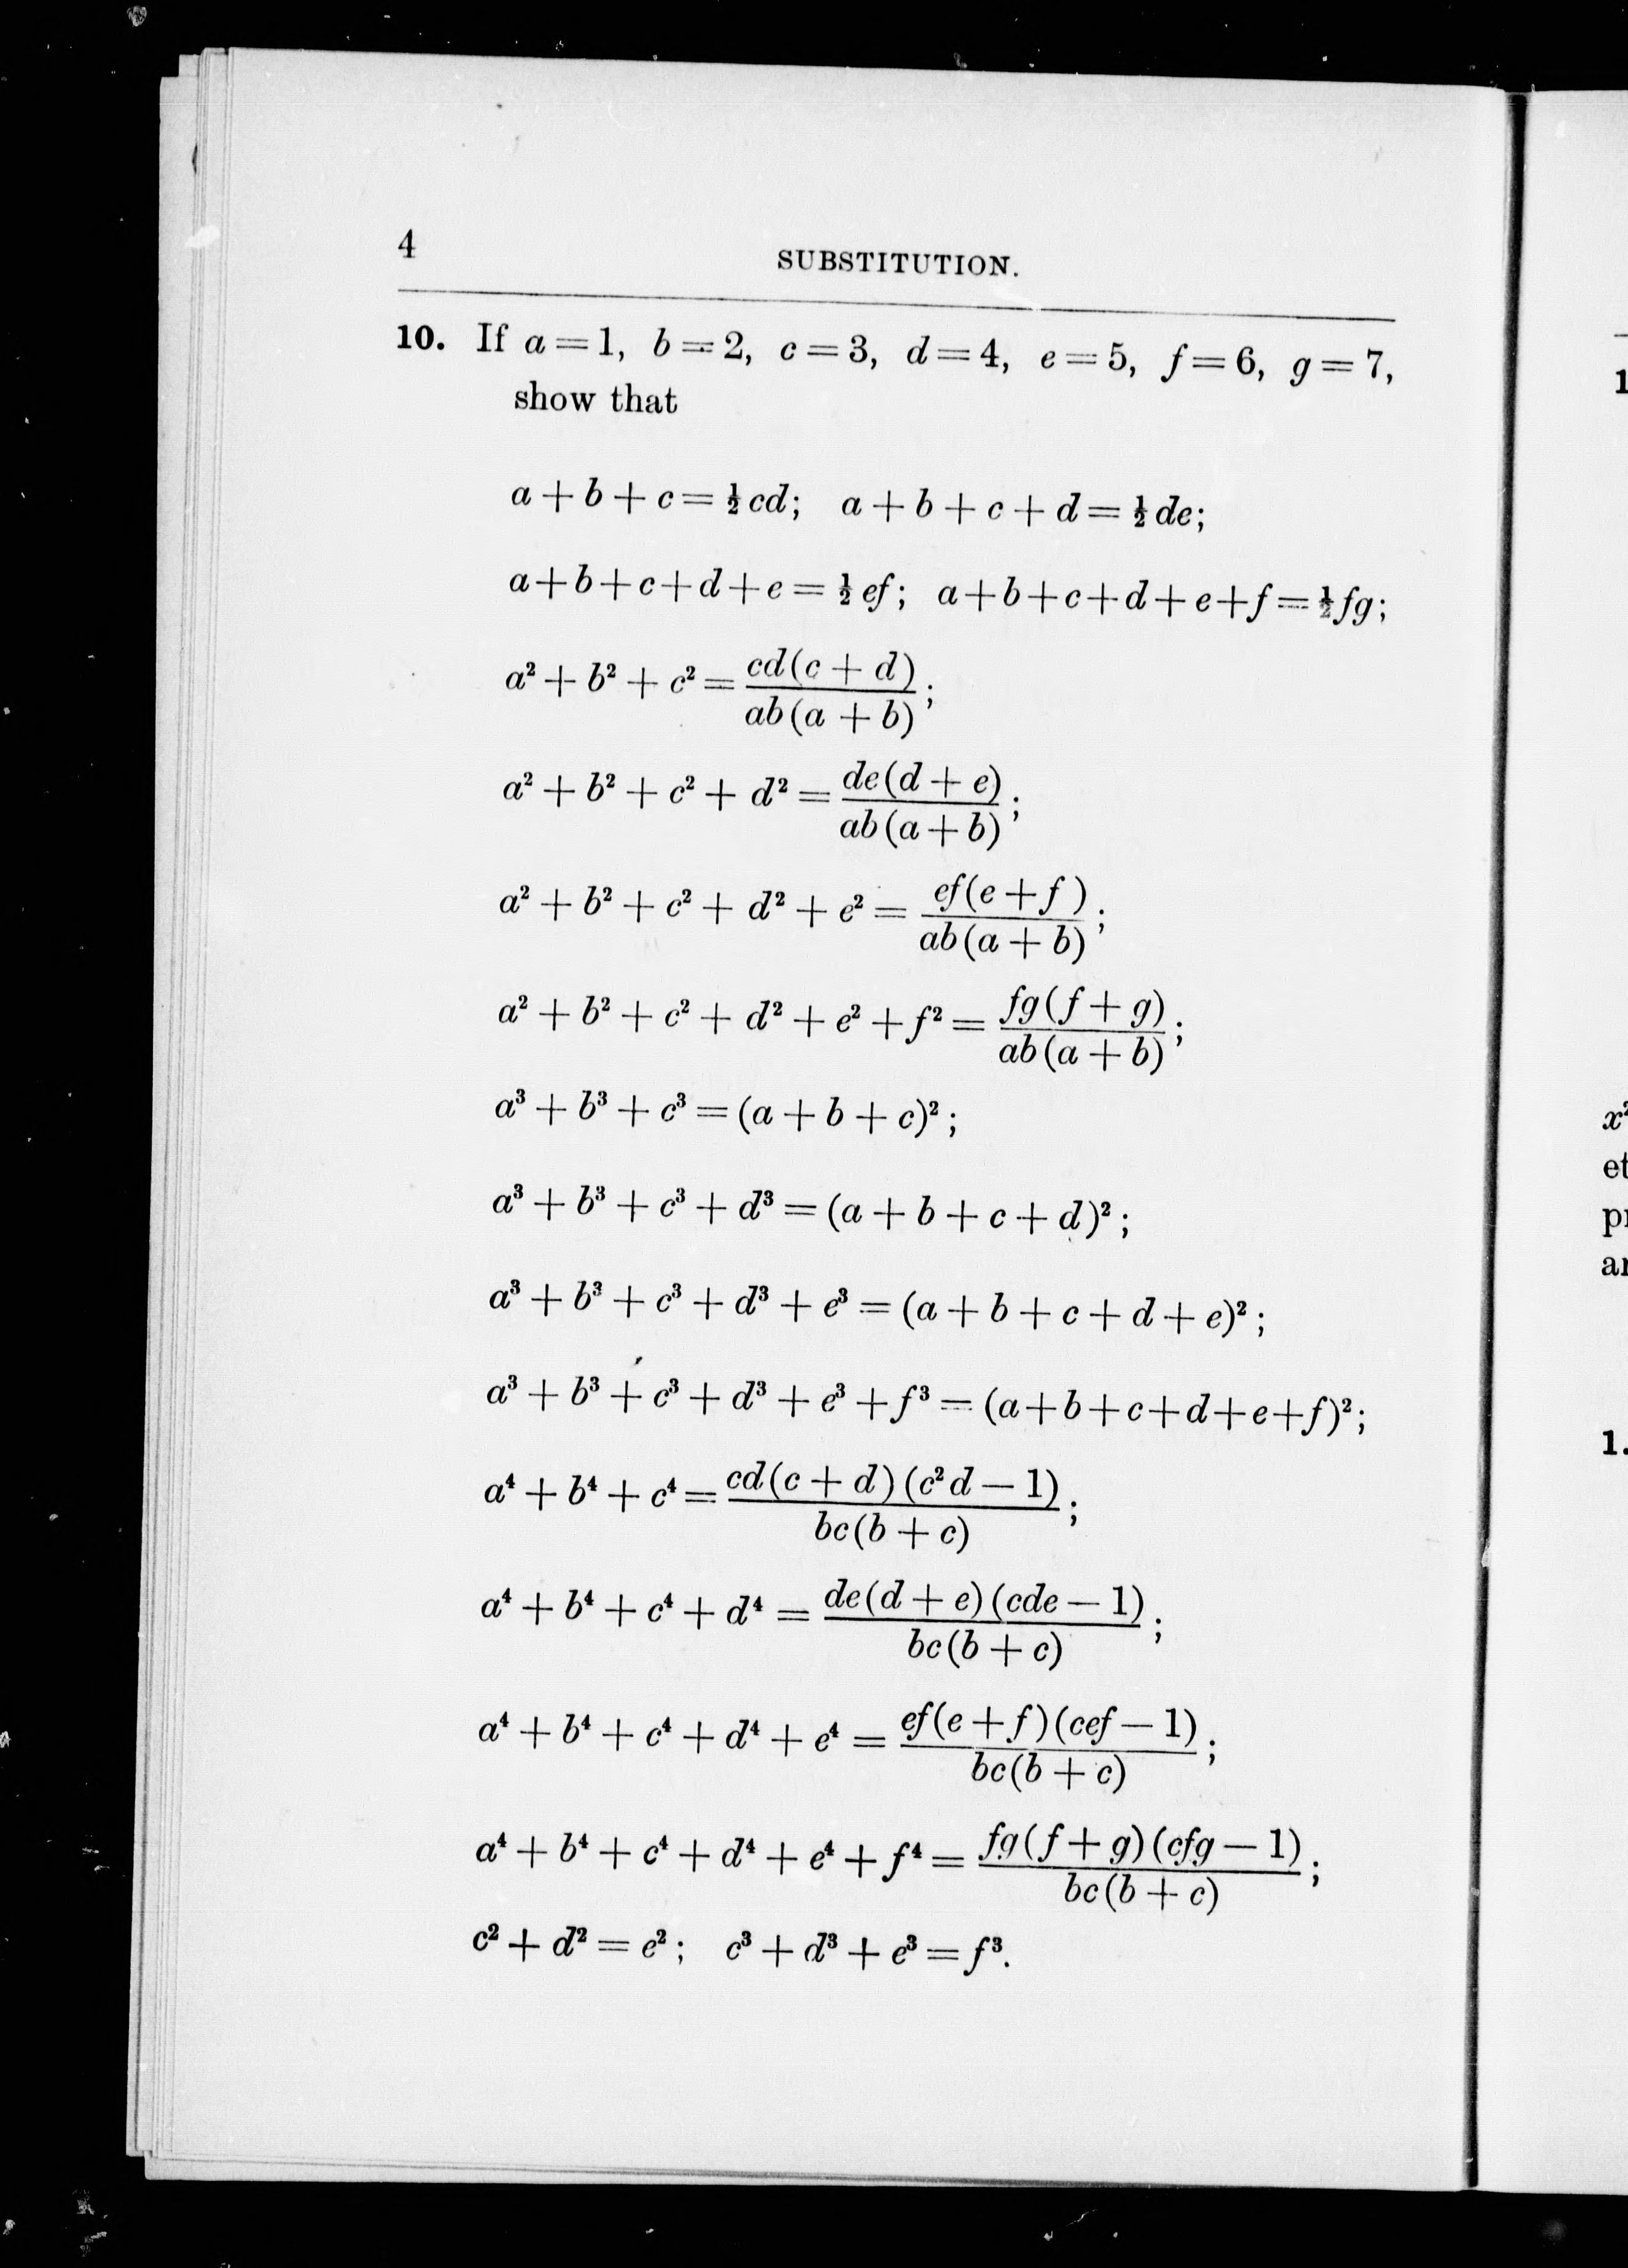 4
SUBSTITUTION.
10. If a = 1, b = 2, c = 3, d = 4, e = 5, f = 6, g = 7,
show that
a + b + c = ½ cd; a + b + c + d = ½ de;
a + b + c + d + e = ½ ef; a + b + c + d + e + f = ½ fg;
a² + b² + c² = cd(c + d) / ab(a + b);
a² + b² + c² + d² = de(d + e) / ab(a + b);
a² + b² + c² + d² + e² = ef(e + f) / ab(a + b);
a² + b² + c² + d² + e² + f² = fg(f + g) / ab(a + b);
a³ + b³ + c³ = (a + b + c)²;
a³ + b³ + c³ + d³ = (a + b + c + d)²;
a³ + b³ + c³ + d³ + e³ = (a + b + c + d + e)²;
a³ + b³ + c³ + d³ + e³ + f³ = (a + b + c + d + e + f)²;
a⁴ + b⁴ + c⁴ = cd(c + d)(c²d − 1) / bc(b + c);
a⁴ + b⁴ + c⁴ + d⁴ = de(d + e)(cde − 1) / bc(b + c);
a⁴ + b⁴ + c⁴ + d⁴ + e⁴ = ef(e + f)(cef − 1) / bc(b + c);
a⁴ + b⁴ + c⁴ + d⁴ + e⁴ + f⁴ = fg(f + g)(cfg − 1) / bc(b + c);
c² + d² = e²; c³ + d³ + e³ = f³.
1.